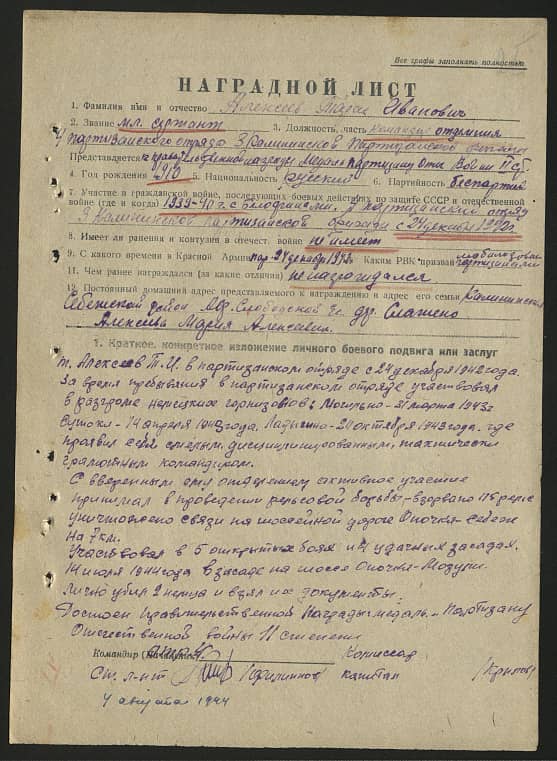 Все графы заполнять полностью
НАГРАДНОЙ ЛИСТ
1. Фамилия имя и отчество Алексеев Иванович
2. Звание мл. сержант 3. Должность, часть командир отделения
4 партизанского отряда 3 Калининской партизанской бригады
Представляется к правительственной награде Медаль Партизану Отеч. Войны II ст.
4. Год рождения 1910 5. Национальность русский 6. Партийность беспартив
7. Участие в гражданской войне, последующих боевых действиях по защите СССР и отечественной
войне (где и когда) 1939-40 г. с белофинами, в партизанском отряде
3 Калининской партизанской бригады с 24 декабря 1942 г.
8. Имеет ли ранения и контузии в отечест. войне не имеет
9. С какого времени в Красной Армии 24 декабря 1942 Каким РВК призван мобилизован партизанами
11. Чем ранее награждался (за какие отличия) не награждался
12. Постоянный домашний адрес представляемого к награждению и адрес его семьи Калининская
Себежский район Слободской с. дер.
Алексеева Мария Алексеевна
1. Краткое, конкретное изложение личного боевого подвига или заслуг
т. Алексеев Т.И. в партизанском отряде с 24 декабря 1942 года.
За время пребывания в партизанском отряде участвовал
в разгроме немецких гарнизонов: Могильно - 31 марта 1943 г
Сутоки - 14 апреля 1943 года. Ладыгино - 21 октября 1943 года. где
проявил себя смелым, дисциплинированным, тактически
грамотным командиром.
С вверенным ему отделением активное участие
принимал в проведении рельсовой борьбы - взорвано рельс
уничтожено связи на шоссейной дороге Опочка - Себеж
на 7 км.
Участвовал в 5 открытых боях и 4 удачных засадах.
14 июля 1944 года в засаде на шоссе Опочка - Мозули.
лично убил 2 немца и взял их документы.
Достоен Правительственной Награды медаль - Партизану
Отечественной войны II степени
Командир (Начальник) Комиссар
Ст. л-нт капитан /Крылов/
4 августа 1944